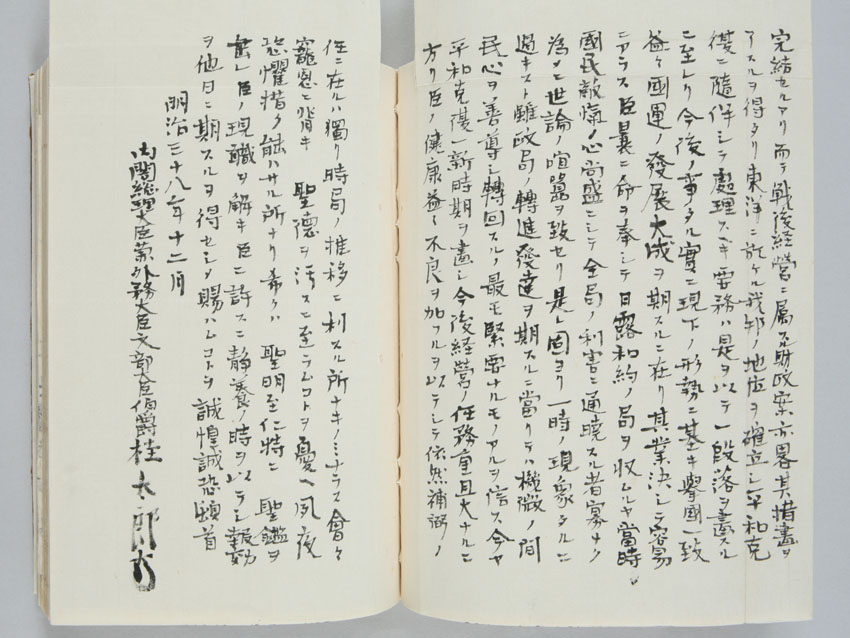 完結セルアリ而テ戦後経営ニ属スル財政案亦畧其措畫ヲ
了スルヲ得タリ東洋ニ於ケル我邦ノ地位ヲ確立シ平和克
復ニ隨伴シテ處理スヘキ要務ハ是ヲ以テ一段落ヲ畫スル
ニ至レリ今後ノ事タル實ニ現下ノ形勢ニ基キ擧國一致
益々國運ノ發展大成ヲ期スルニ在リ其業決シテ容易
ニアラス臣曩ニ命ヲ奉シテ日露和約ノ局ヲ収ムルヤ當時
國民敵愾ノ心尚盛ニシテ全局ノ利害ニ通曉スル者寡ナク
為メニ世論ノ喧囂ヲ致セリ是レ固ヨリ一時ノ現象タルニ
過キスト雖政局ノ轉進發達ヲ期スルニ當リテハ機微ノ間
民心ヲ善導シ轉回スルノ最モ緊要ナルモノアルヲ信ス今ヤ
平和克復一新時期ヲ畫シ今後経營ノ任務重且大ナルニ
方リ臣ノ健康益々不良ヲ加フルヲ以テシテ依然補弼ノ
任ニ在ルハ獨リ時局ノ推移ニ利スル所ナキノミナラス會々
寵恩ニ背キ 聖德ヲ汚スニ至ラムコトヲ憂ヘ夙夜
恐懼措ク能ハサル所ナリ希クハ 聖明至仁特ニ 聖鑑ヲ
垂レ臣ノ現職ヲ解キ臣ニ許スニ静養ノ時ヲ以テシ報効
ヲ他日ニ期スルヲ得セシメ賜ハムコトヲ誠惶誠恐頓首
明治三十八年十二月
内閣総理大臣兼外務大臣文部大臣伯爵桂太郎